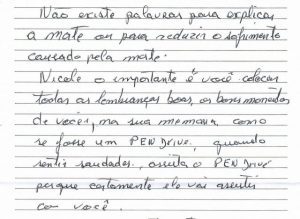 Não existe palavras para explicar
a morte ou para reduzir o sofrimento
causado pela morte.
Nicole o importante é você colocar
todas as lembranças boas, os bons momentos
de vocês, na sua memoria, como
se fosse um PEN DRIVE, quando
sentir saudades, assista o PEN DRIVE
porque certamente ele vai assistir
com você.